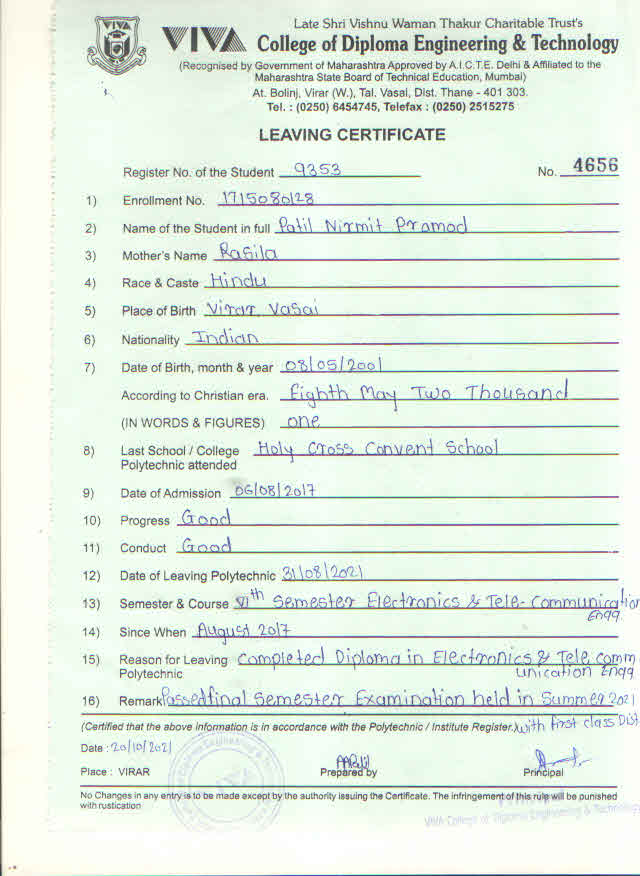 Late Shri Vishnu Waman Thakur Charitable Trust's
VIVA College of Diploma Engineering & Technology
(Recognised by Government of Maharashtra Approved by A.I.C.T.E. Delhi & Affiliated to the
Maharashtra State Board of Technical Education, Mumbai)
At. Bolinj, Virar (W.), Tal. Vasai, Dist. Thane - 401 303.
Tel. : (0250) 6454745, Telefax : (0250) 2515275
LEAVING CERTIFICATE
Register No. of the Student 9353 No. 4656
1) Enrollment No. 1715080128
2) Name of the Student in full Patil Nirmit Pramod
3) Mother's Name Rasila
4) Race & Caste Hindu
5) Place of Birth Virar Vasai
6) Nationality Indian
7) Date of Birth, month & year 08/05/2001
According to Christian era. Eighth May Two Thousand
(IN WORDS & FIGURES) one
8) Last School / College Holy Cross Convent School
Polytechnic attended
9) Date of Admission 06/08/2017
10) Progress Good
11) Conduct Good
12) Date of Leaving Polytechnic 31/08/2021
13) Semester & Course VIth Semester Electronics & Tele-Communication
Engg.
14) Since When August 2017
15) Reason for Leaving Completed Diploma in Electronics & Tele comm
Polytechnic unication Engg
16) Remark Passed final Semester Examination held in Summer 2021
(Certified that the above information is in accordance with the Polytechnic / Institute Register.) with first class Dist
Date : 20/10/2021
Place : VIRAR Prepared by Principal
No Changes in any entry is to be made except by the authority issuing the Certificate. The infringement of this rule will be punished
with rustication
VIVA College of Diploma Engineering & Technology
VIVA